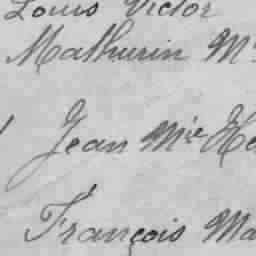 Louis Victor
Mathurin M
Jean Mie He
François Ma